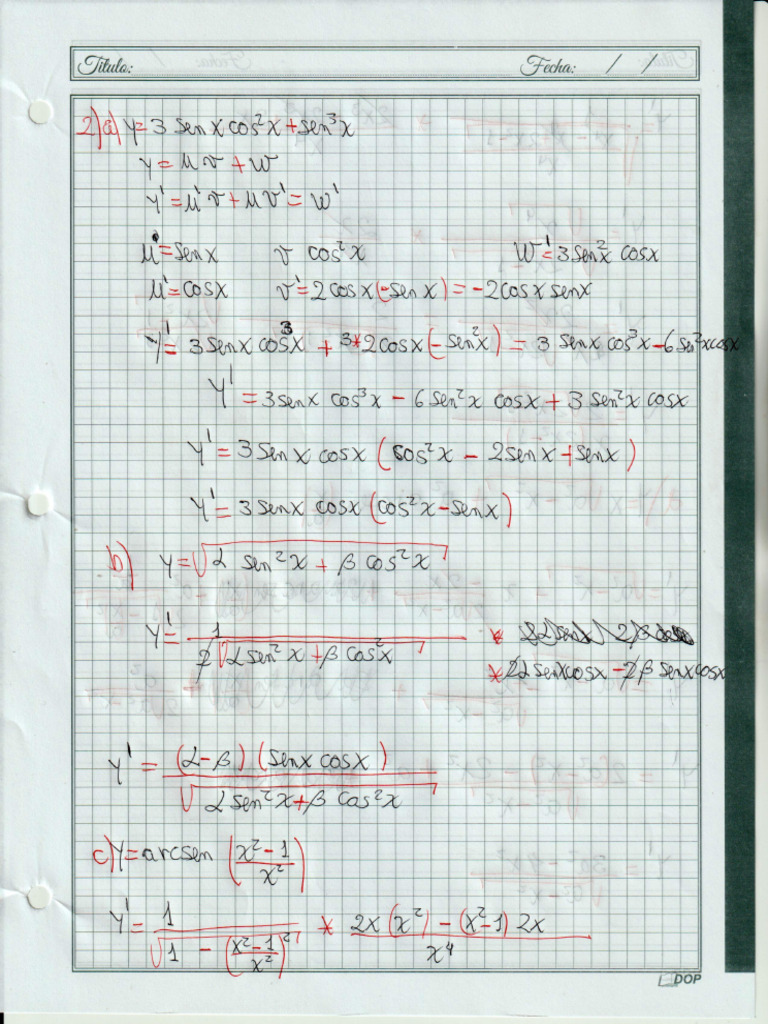 Título: Fecha: / /
2) a) y = 3 sen x cos² x + sen³ x
y = μ v + w
y' = μ' v + μ v' = w'
μ = sen x v cos² x w' = 3 sen² x cos x
μ' = cos x v' = 2 cos x (- sen x) = - 2 cos x sen x
y' = 3 sen x cos³ x + 3 * 2 cos x (- sen² x) = 3 sen x cos³ x - 6 sen² x cos x
y' = 3 sen x cos³ x - 6 sen² x cos x + 3 sen² x cos x
y' = 3 sen x cos x (cos² x - 2 sen x + sen x)
y' = 3 sen x cos x (cos² x - sen x)
b) y = √(α sen² x + β cos² x)
y' = 1 / (2 √(α sen² x + β cos² x)) * 2α sen x cos x - 2β sen x cos x
y' = (α - β) (sen x cos x) / √(α sen² x + β cos² x)
c) y = arcsen ((x² - 1) / x²)
y' = 1 / √(1 - ((x² - 1) / x²)²) * (2x (x²) - (x² - 1) 2x) / x⁴
DOP